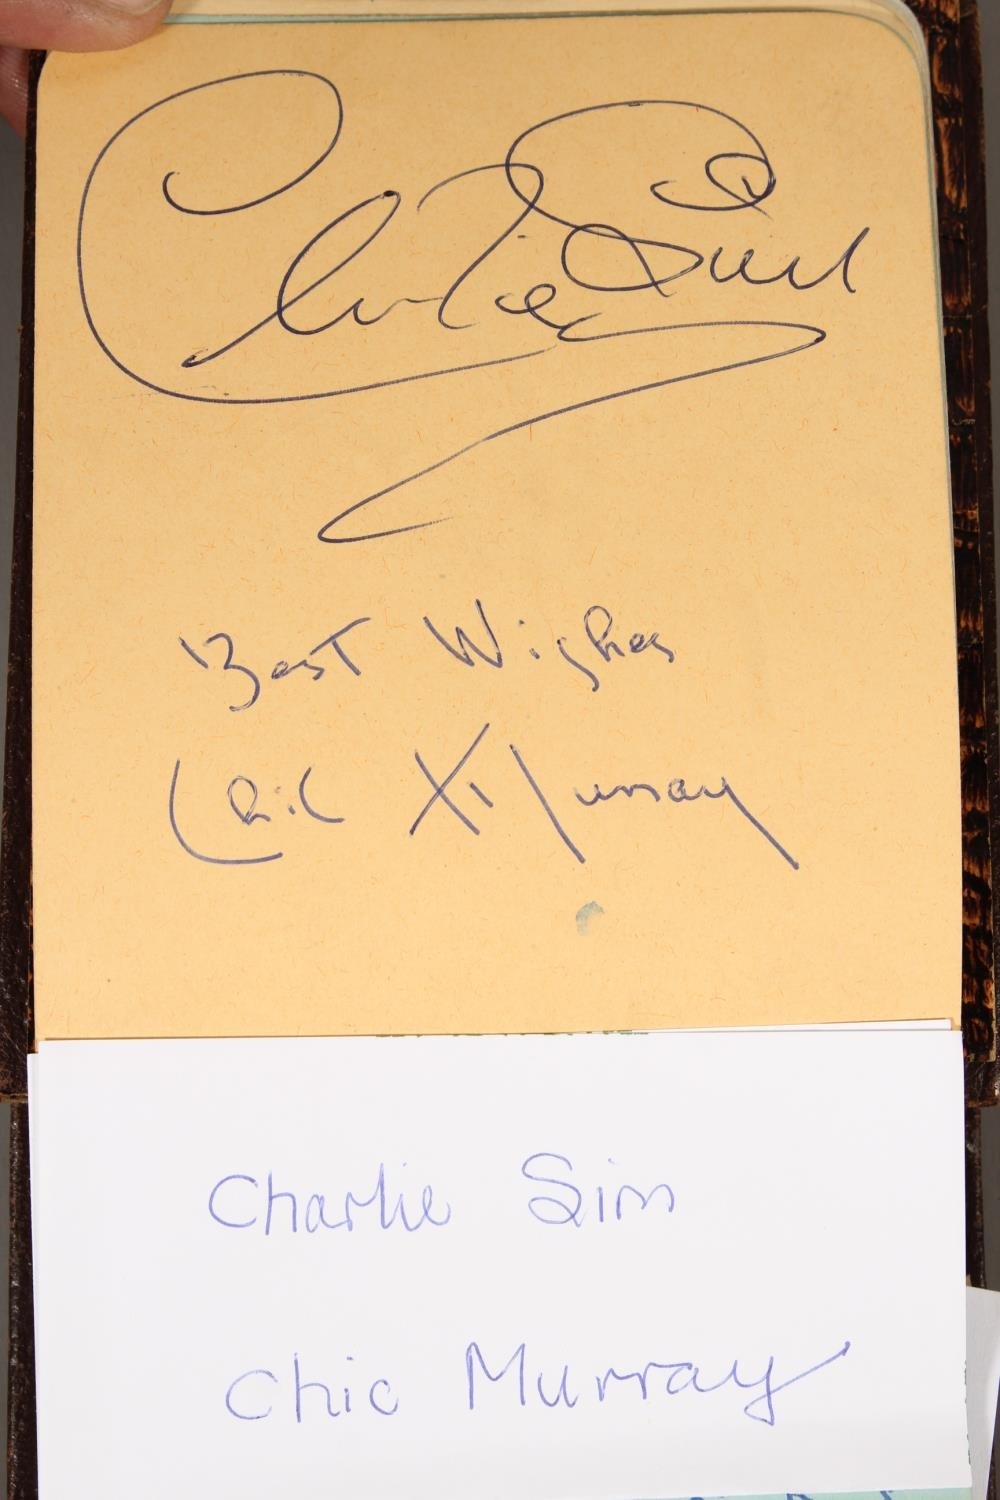 Charlie Sim
Best Wishes
Chic Murray
Charlie Sim
Chic Murray